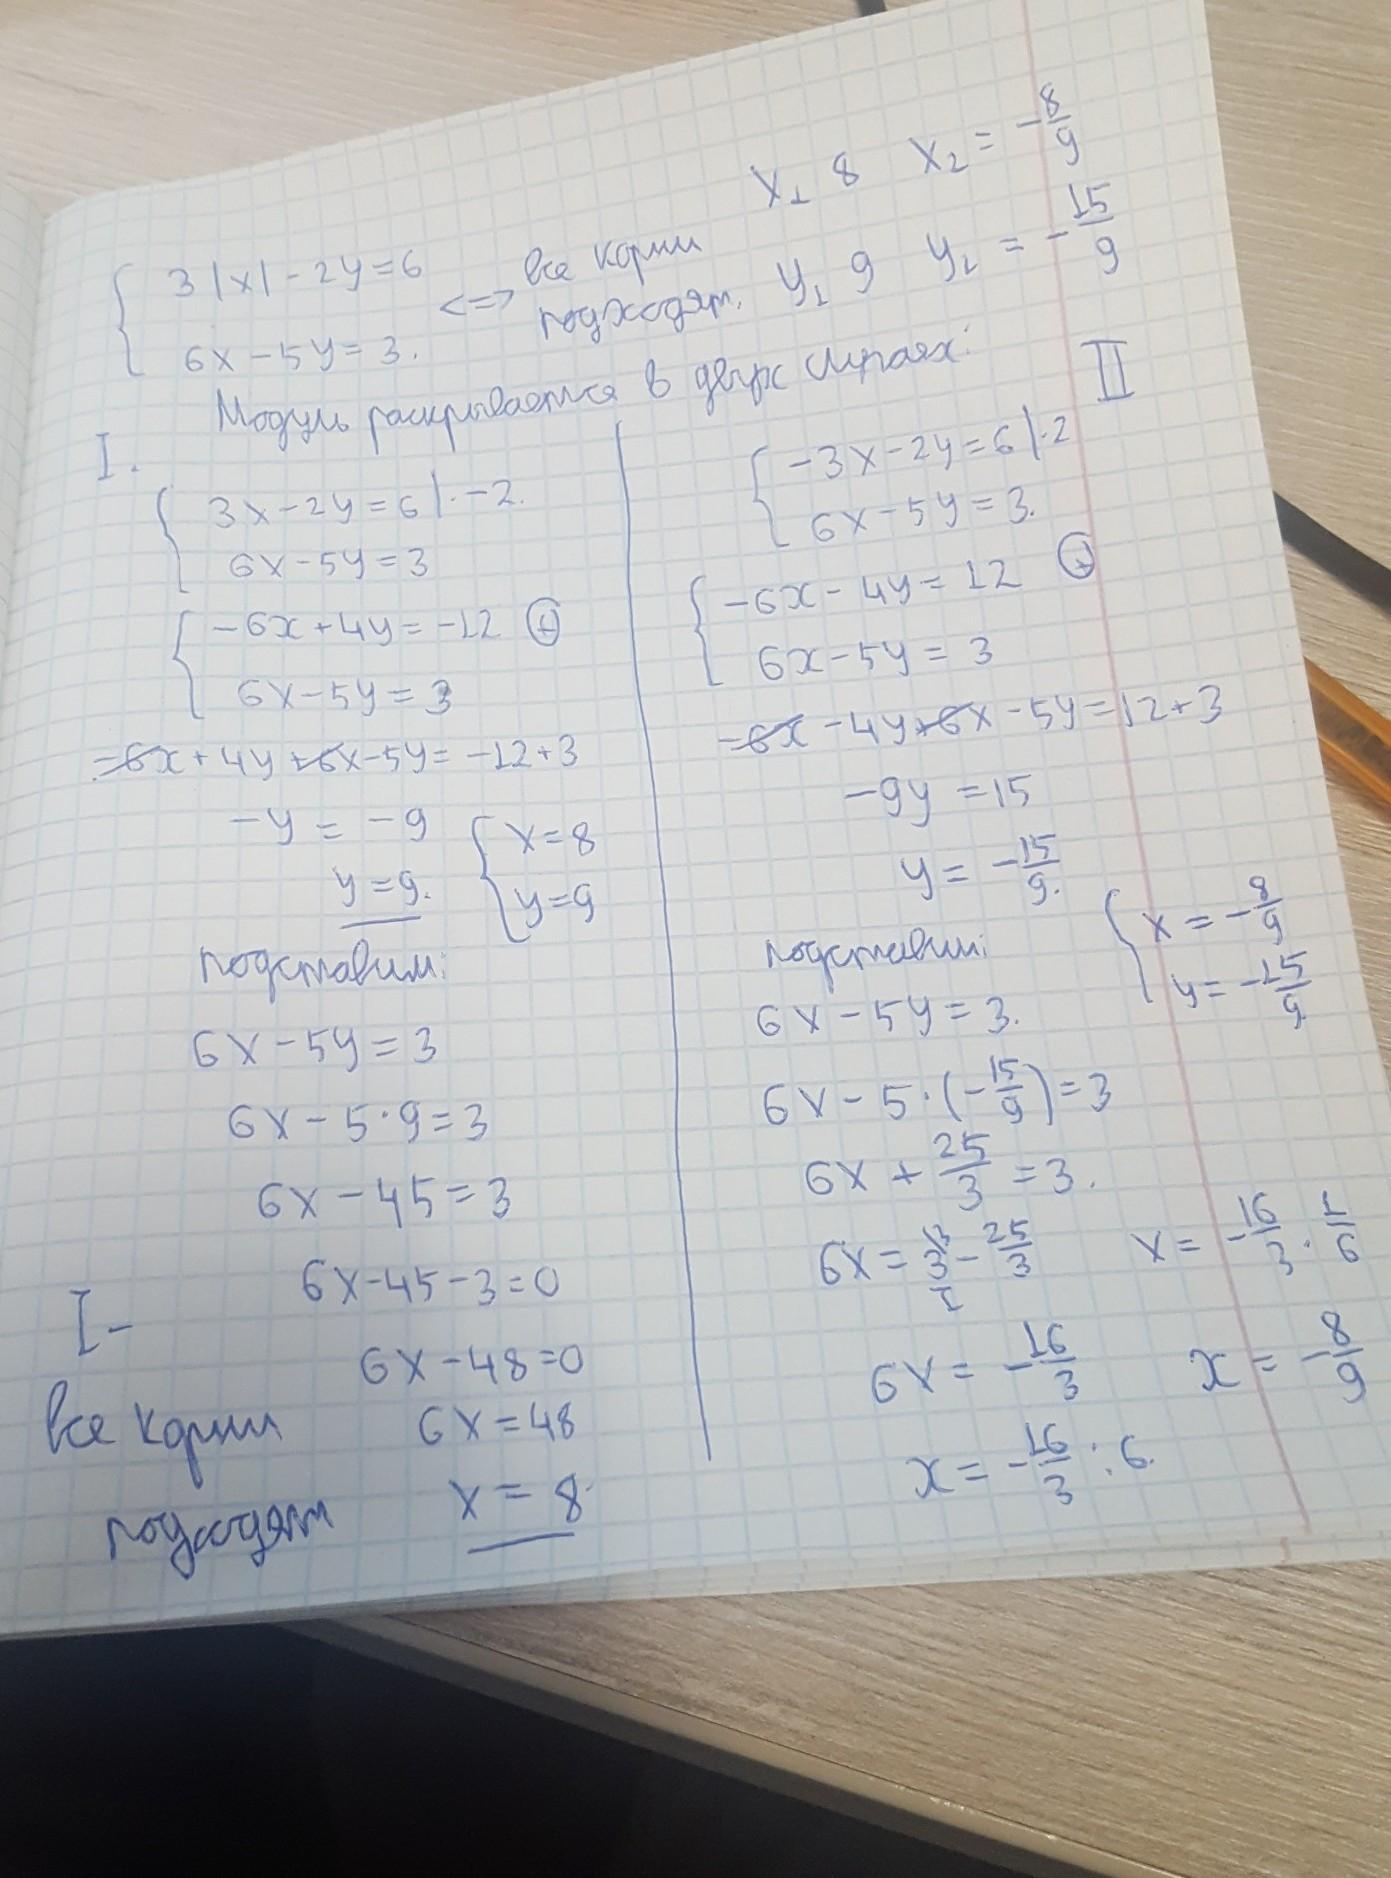 x₁ 8 x₂ = -8/9
{ 3|x| - 2y = 6 <=> все корни подходят. y₁ 9 y₂ = -15/9
6x - 5y = 3.
Модуль раскрывается в двух случаях:
I.
{ 3x - 2y = 6 |·-2.
6x - 5y = 3
{ -6x + 4y = -12 (+)
6x - 5y = 3
-6x + 4y + 6x - 5y = -12 + 3
-y = -9
y = 9.
{ x = 8
y = 9
подставим:
6x - 5y = 3
6x - 5·9 = 3
6x - 45 = 3
6x - 45 - 3 = 0
6x - 48 = 0
6x = 48
x = 8.
I -
все корни
подходят
II
{ -3x - 2y = 6 |·2
6x - 5y = 3.
{ -6x - 4y = 12 (+)
6x - 5y = 3
-6x - 4y + 6x - 5y = 12 + 3
-9y = 15
y = -15/9.
{ x = -8/9
y = -15/9
подставим:
6x - 5y = 3.
6x - 5·(-15/9) = 3
6x + 25/3 = 3.
6x = 3/1 - 25/3
6x = -16/3
x = -16/3 : 6.
x = -16/3 · 1/6
x = -8/9